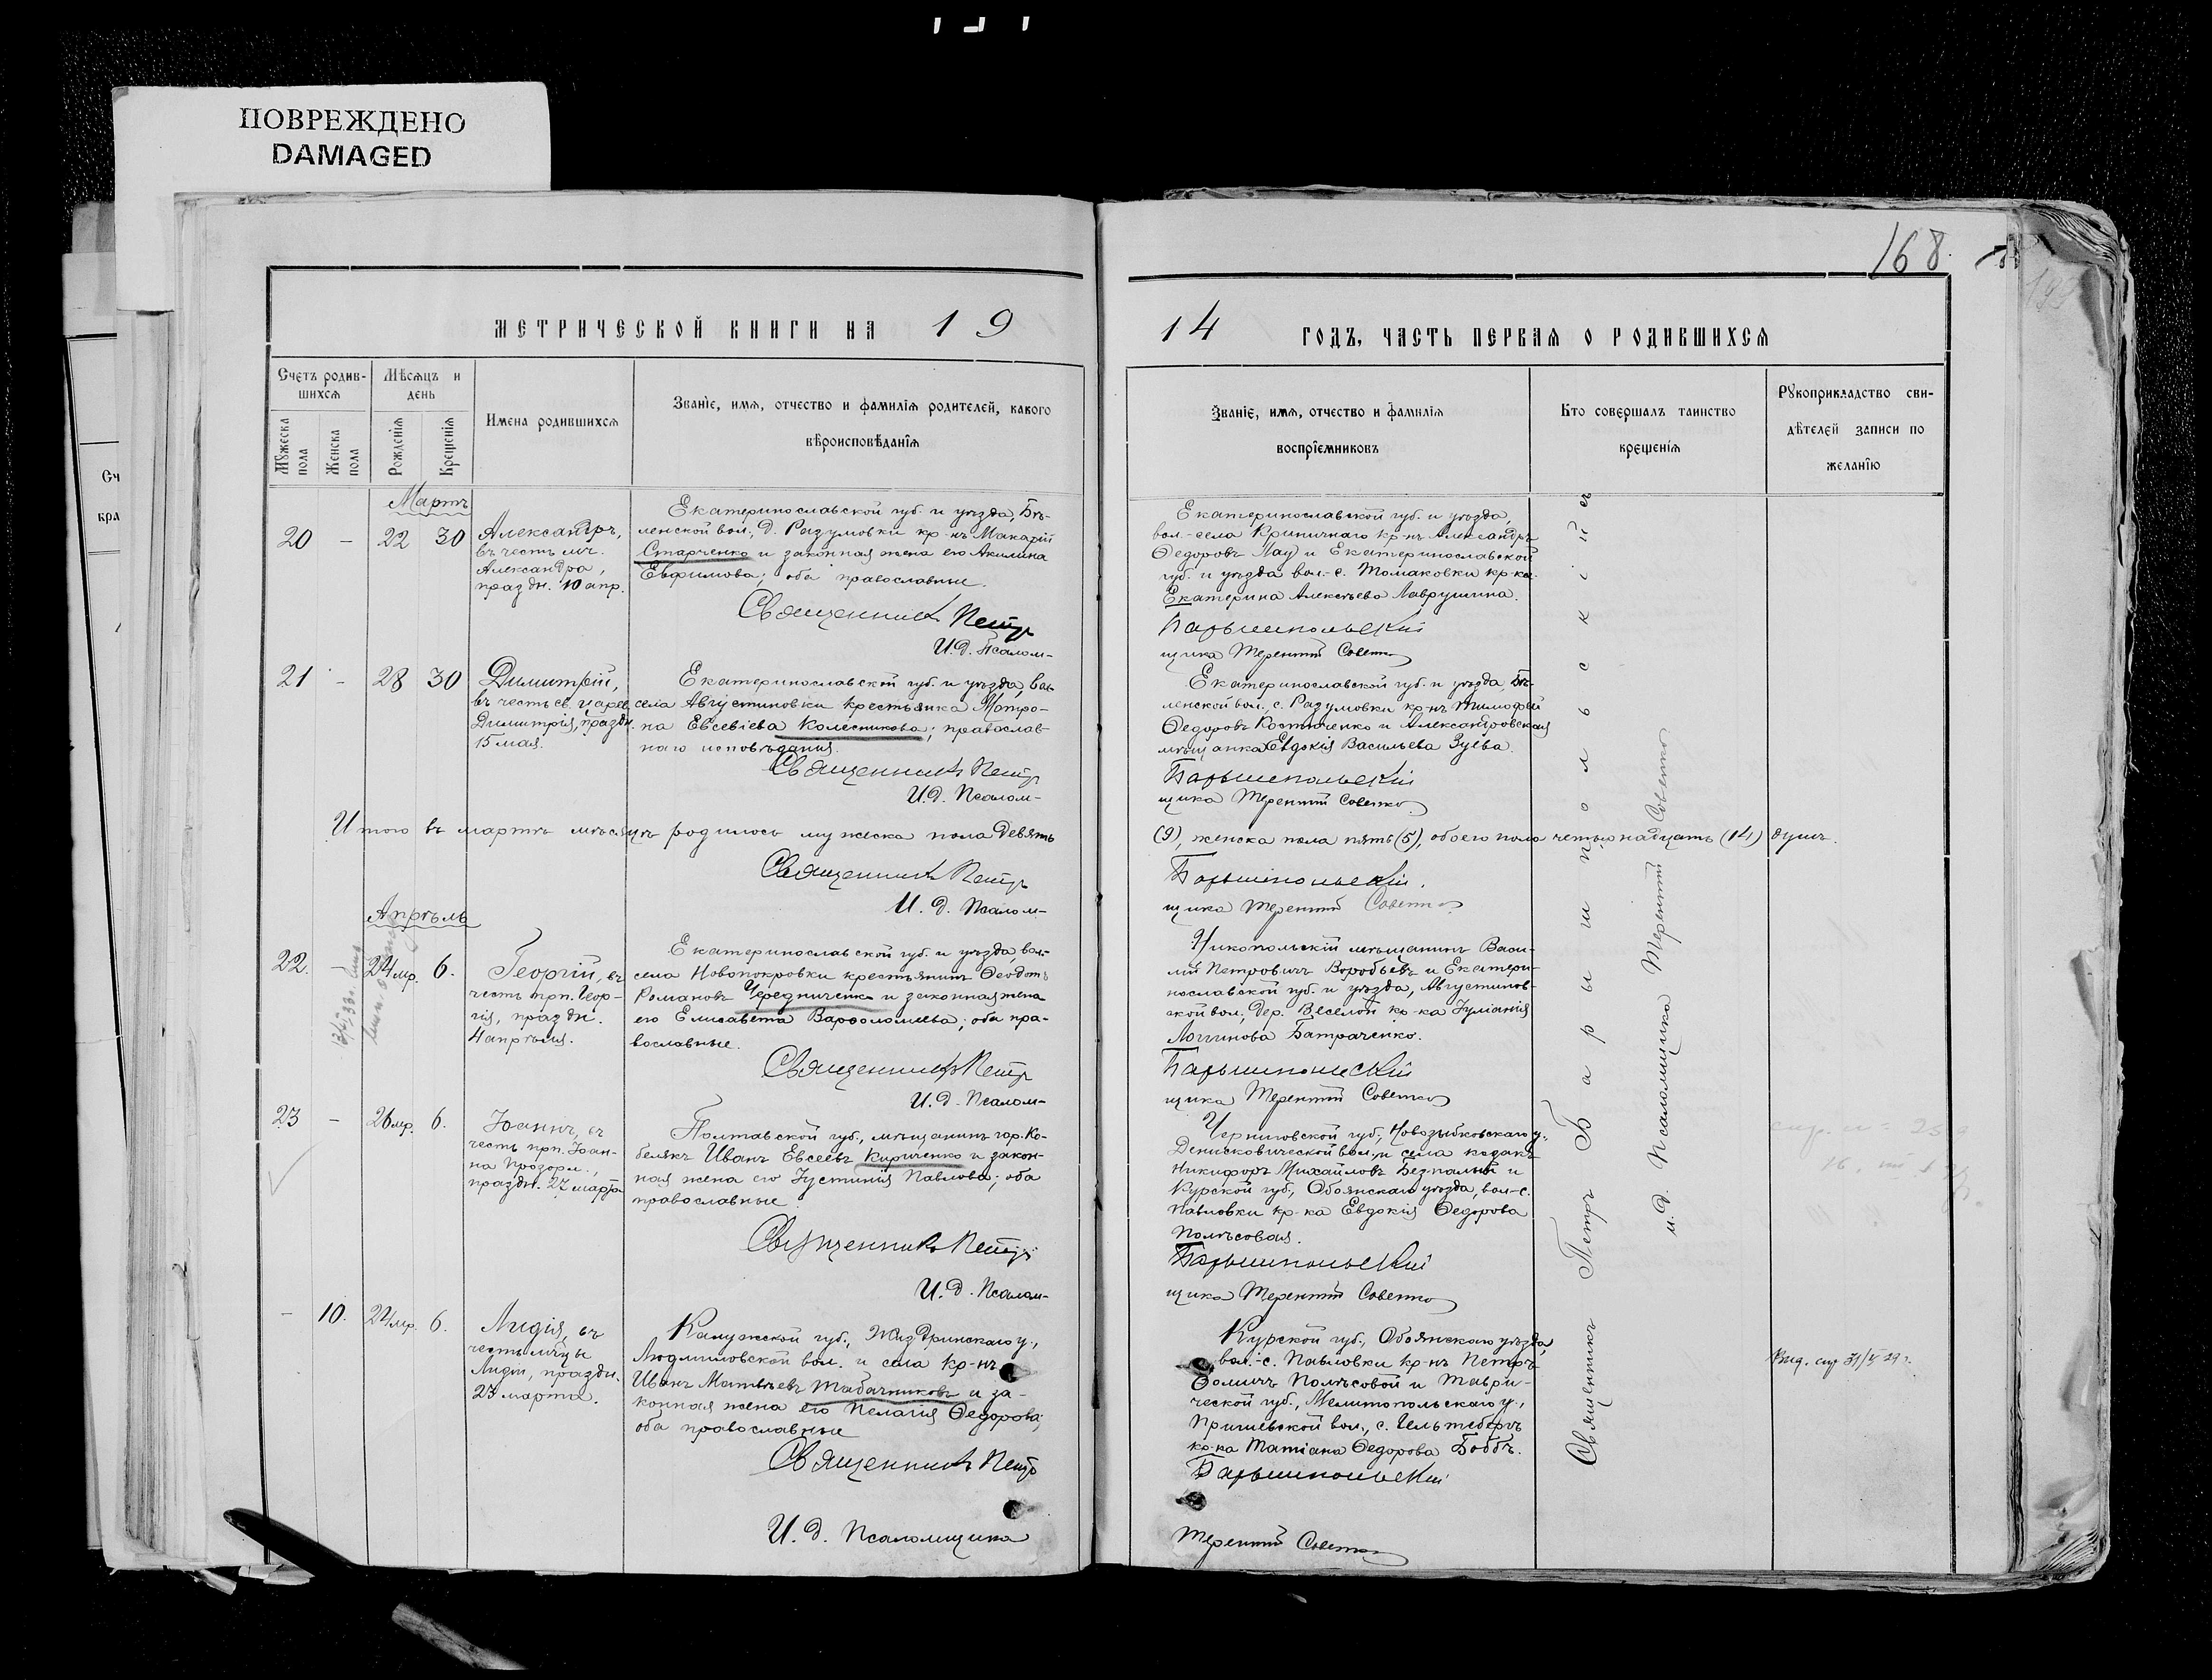 ПОВРЕЖДЕНО
DAMAGED
168
МЕТРИЧЕСКОЙ КНИГИ НА 19
Счетъ родив-
шихся
Мѣсяцъ и
день
Мужеска
пола
Женска
пола
Рожденія
Крещенія
Имена родившихся
Званіе, имя, отчество и фамилія родителей, какого
вѣроисповѣданія
Мартъ
20 - 22 30
Александръ,
въ честь мч.
Александра,
праздн. 10 апр.
Екатеринославской губ. и уѣзда, Бѣ-
ленской вол., д. Разумовки кр-нъ Макарій
Старченко и законная жена его Акилина
Евфимова; оба православные.
Священникъ Петръ
И. д. Псалом-
21 - 28 30
Димитрій,
въ честь св. царев.
Димитрія, праздн.
15 мая.
Екатеринославской губ. и уѣзда, вол.
села Августиновки крестьянка Матро-
на Евсевіева Колесникова; православ-
наго исповѣданія.
Священникъ Петръ
И. д. Псалом-
Итого въ мартѣ мѣсяцѣ родилось мужеска пола девять
Священникъ Петръ
И. д. Псалом-
Апрѣль
22. - 24 мр. 6.
Георгій, въ
честь прп. Геор-
гія, праздн.
4 апрѣля.
Екатеринославской губ. и уѣзда, вол.-
села Новопокровки крестьянинъ Ѳеодотъ
Романовъ Чередниченко и законная жена
его Елисавета Варѳоломеева; оба пра-
вославные.
Священникъ Петръ
И. д. Псалом-
23 - 26 мр. 6.
Іоаннъ, въ
честь прп. Іоан-
на прозорл.,
праздн. 27 марта
Полтавской губ., мѣщанинъ гор. Ко-
белякъ Иванъ Евсеевъ Кириченко и закон-
ная жена его Іустинія Павлова; оба
православные.
Священникъ Петръ
И. д. Псалом-
- 10. 24 мр. 6.
Лидія, въ
честь мчцы
Лидіи, праздн.
23 марта.
Калужской губ., Жиздринскаго у.,
Людиновской вол. и села кр-нъ
Иванъ Матвѣевъ Табачниковъ и за-
конная жена его Пелагія Ѳедорова;
оба православные
Священникъ Петръ
И. д. Псаломщика
14 ГОДЪ, ЧАСТЬ ПЕРВАЯ О РОДИВШИХСЯ
Званіе, имя, отчество и фамилія
воспріемниковъ
Кто совершалъ таинство
крещенія
Рукоприкладство сви-
дѣтелей записи по
желанію
Екатеринославской губ. и уѣзда,
вол.-села Криничнаго кр-нъ Александръ
Ѳедоровъ Лау и Екатеринославской
губ. и уѣзда вол.-с. Томаковки кр-ка
Екатерина Алексѣева Лаврушина.
Барышпольскій
щика Терентій Совенко
Екатеринославской губ. и уѣзда, Бѣ-
ленской вол., с. Разумовки кр-нъ Тимофей
Ѳедоровъ Костюченко и Александровская
мѣщанка Евдокія Васильева Зуева.
Барышпольскій
щика Терентій Совенко
(9), женска пола пять (5), обоего пола четырнадцать (14) душъ.
Барышпольскій.
щика Терентій Совенко
Никопольскій мѣщанинъ Васи-
лій Петровичъ Воробьевъ и Екатери-
нославской губ. и уѣзда, Августинов-
ской вол., дер. Веселой кр-ка Іуліанія
Логгинова Батраченко.
Барышпольскій
щика Терентій Совенко
Черниговской губ., Новозыбковскаго у.,
Денисковической вол. и села козакъ
Никифоръ Михайловъ Безпалый и
Курской губ., Обоянскаго уѣзда, вол.-с.
Павловки кр-ка Евдокія Ѳедорова
Полѣсовая.
Барышпольскій
щика Терентій Совенко
Курской губ., Обоянскаго уѣзда,
вол.-с. Павловки кр-нъ Петръ
Ѳомичъ Полѣсовой и Таври-
ческой губ., Мелитопольскаго у.,
Пришибской вол., с. Гельтебергъ
кр-ка Татіана Ѳедорова Боббъ.
Барышпольскій
Терентій Совенко
Священникъ Петръ Барышпольскій
и. д. Псаломщика Терентій Совенко